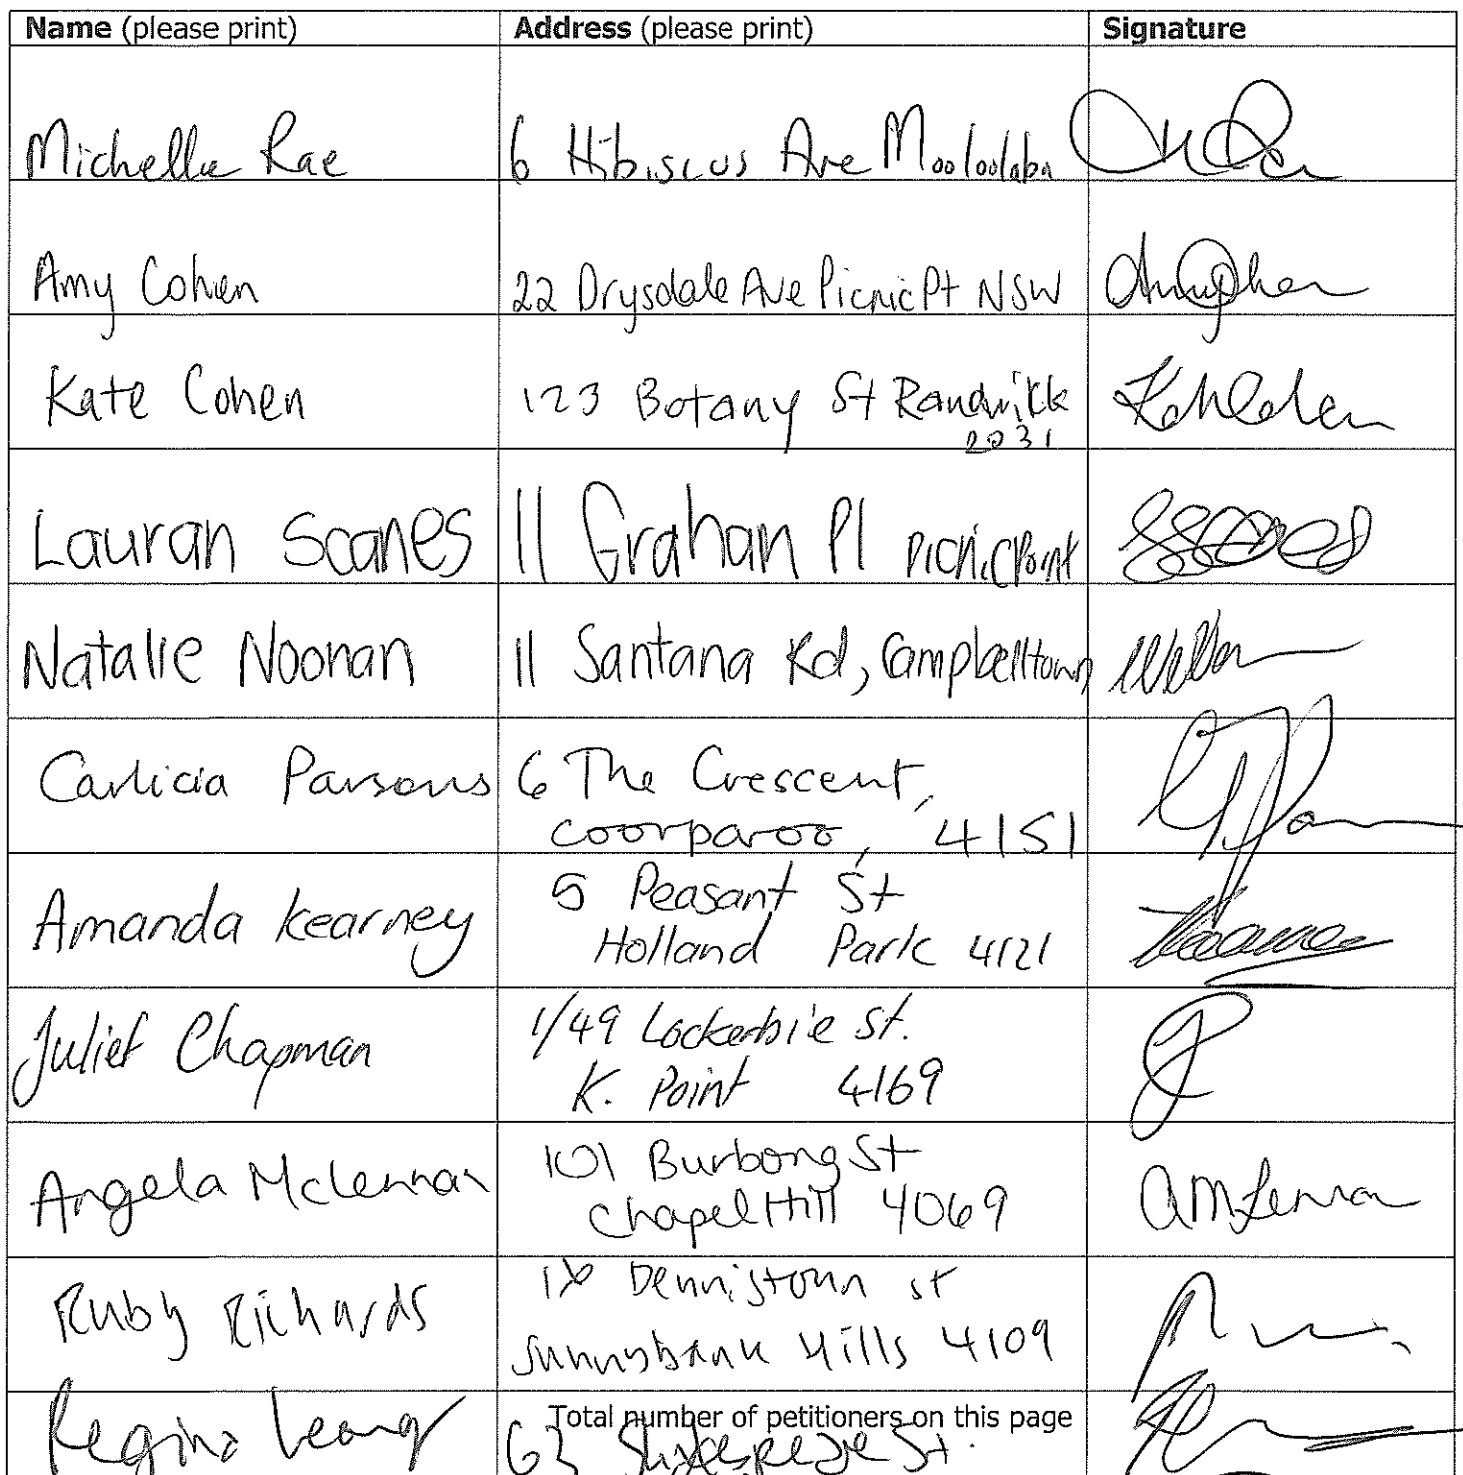 Name (please print) Address (please print) Signature
Michelle Rae 6 Hibiscus Ave Mooloolaba
Amy Cohen 22 Drysdale Ave Picnic Pt NSW
Kate Cohen 123 Botany St Randwikk
2031
Lauran Scanes 11 Grahan Pl Picnic Point
Natalie Noonan 11 Santana Rd, Campbelltown
Carlicia Parsons 6 The Crescent,
Coorparoo, 4151
Amanda Kearney 5 Peasant St
Holland Park 4121
Juliet Chapman 1/49 Lockerbie St.
K. Point 4169
Angela Mclennan 101 Burbong St
Chapel Hill 4069
Ruby Richards Dennistoun st
Sunnybank Hills 4109
Total number of petitioners on this page
Regina Leong 63 St.